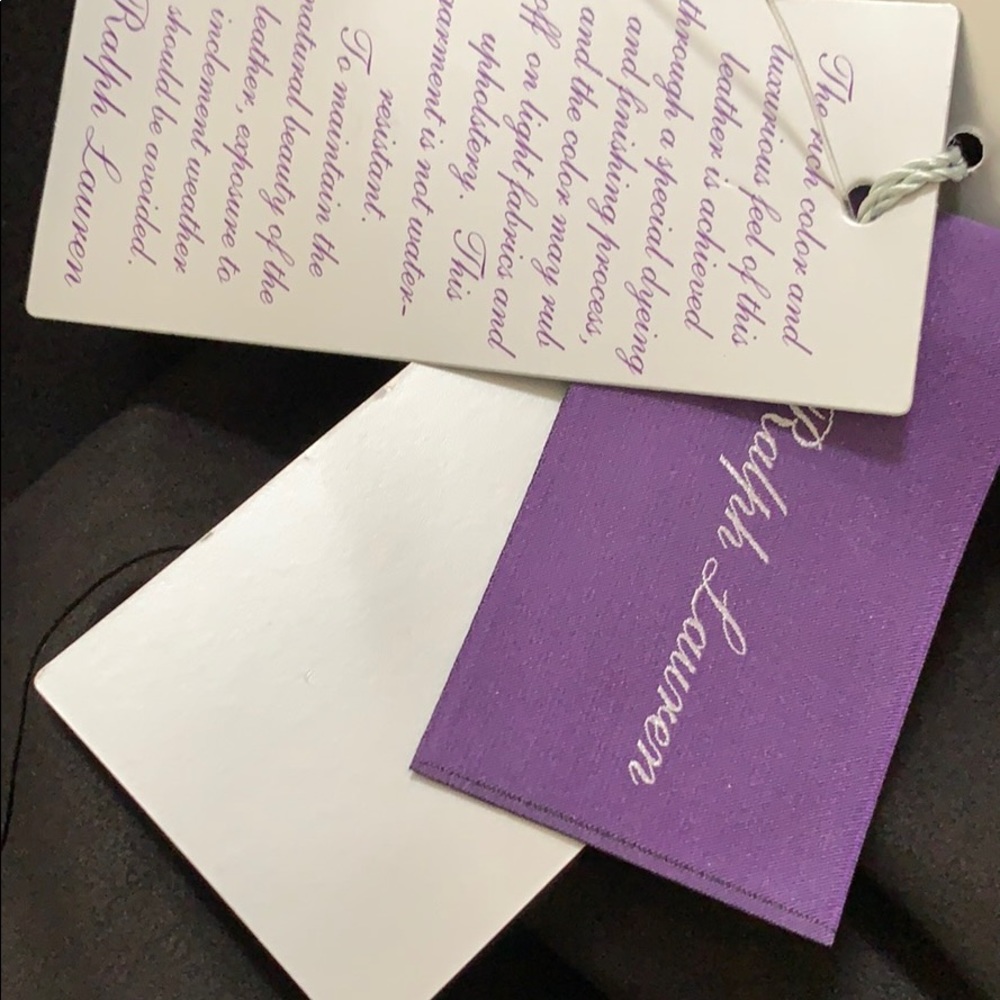 The rich color and
luxurious feel of this
leather is achieved
through a special dyeing
and finishing process,
and the color may rub
off on light fabrics and
upholstery. This
garment is not water-
resistant.
To maintain the
natural beauty of the
leather, exposure to
inclement weather
should be avoided.
Ralph Lauren
Ralph Lauren